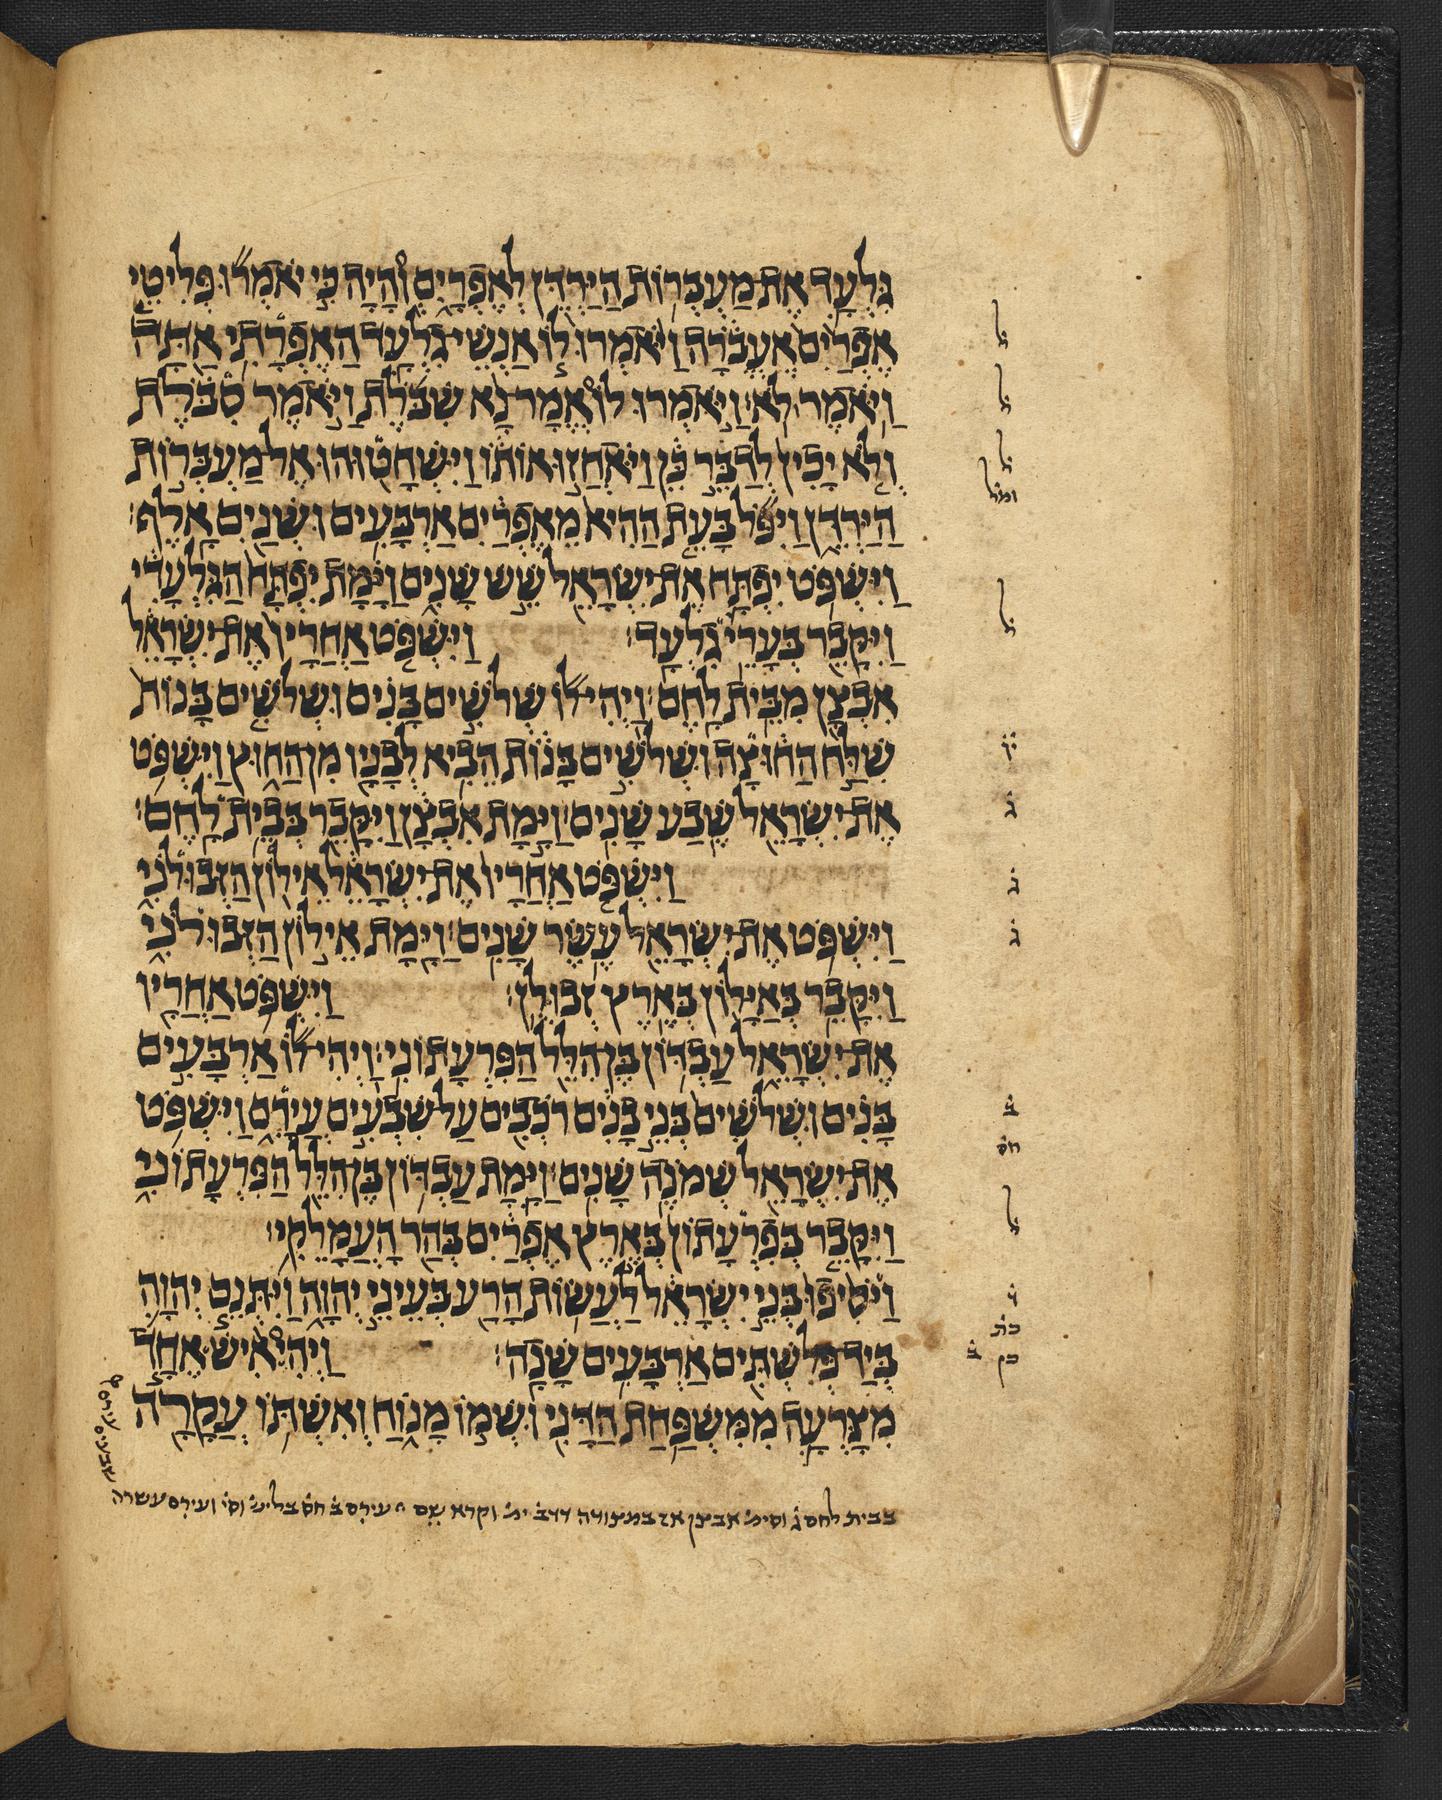 גִּלְעָד אֶת מַעְבְּרוֹת הַיַּרְדֵּן לְאֶפְרָיִם וְהָיָה כִּי יֹאמְרוּ פְּלִיטֵי
אֶפְרַיִם אֶעֱבֹרָה וַיֹּאמְרוּ לוֹ אַנְשֵׁי גִלְעָד הַאֶפְרָתִי אַתָּה
וַיֹּאמֶר לֹא׃ וַיֹּאמְרוּ לוֹ אֱמָר נָא שִׁבֹּלֶת וַיֹּאמֶר סִבֹּלֶת
וְלֹא יָכִין לְדַבֵּר כֵּן וַיֹּאחֲזוּ אוֹתוֹ וַיִּשְׁחָטוּהוּ אֶל מַעְבְּרוֹת
הַיַּרְדֵּן וַיִּפֹּל בָּעֵת הַהִיא מֵאֶפְרַיִם אַרְבָּעִים וּשְׁנַיִם אָלֶף׃
וַיִּשְׁפֹּט יִפְתָּח אֶת יִשְׂרָאֵל שֵׁשׁ שָׁנִים וַיָּמָת יִפְתָּח הַגִּלְעָדִי
וַיִּקָּבֵר בְּעָרֵי גִלְעָד׃ וַיִּשְׁפֹּט אַחֲרָיו אֶת יִשְׂרָאֵל
אִבְצָן מִבֵּית לָחֶם׃ וַיְהִי לוֹ שְׁלֹשִׁים בָּנִים וּשְׁלֹשִׁים בָּנוֹת
שִׁלַּח הַחוּצָה וּשְׁלֹשִׁים בָּנוֹת הֵבִיא לְבָנָיו מִן הַחוּץ וַיִּשְׁפֹּט
אֶת יִשְׂרָאֵל שֶׁבַע שָׁנִים׃ וַיָּמָת אִבְצָן וַיִּקָּבֵר בְּבֵית לָחֶם׃
וַיִּשְׁפֹּט אַחֲרָיו אֶת יִשְׂרָאֵל אֵילוֹן הַזְּבוּלֹנִי
וַיִּשְׁפֹּט אֶת יִשְׂרָאֵל עֶשֶׂר שָׁנִים׃ וַיָּמָת אֵילוֹן הַזְּבוּלֹנִי
וַיִּקָּבֵר בְּאַיָּלוֹן בְּאֶרֶץ זְבוּלֻן׃ וַיִּשְׁפֹּט אַחֲרָיו
אֶת יִשְׂרָאֵל עַבְדּוֹן בֶּן הִלֵּל הַפִּרְעָתוֹנִי׃ וַיְהִי לוֹ אַרְבָּעִים
בָּנִים וּשְׁלֹשִׁים בְּנֵי בָנִים רֹכְבִים עַל שִׁבְעִים עֲיָרִם וַיִּשְׁפֹּט
אֶת יִשְׂרָאֵל שְׁמֹנֶה שָׁנִים׃ וַיָּמָת עַבְדּוֹן בֶּן הִלֵּל הַפִּרְעָתוֹנִי
וַיִּקָּבֵר בְּפִרְעָתוֹן בְּאֶרֶץ אֶפְרַיִם בְּהַר הָעֲמָלֵקִי׃
וַיֹּסִיפוּ בְּנֵי יִשְׂרָאֵל לַעֲשׂוֹת הָרַע בְּעֵינֵי יְהוָה וַיִּתְּנֵם יְהוָה
בְּיַד פְּלִשְׁתִּים אַרְבָּעִים שָׁנָה׃ וַיְהִי אִישׁ אֶחָד
מִצָּרְעָה מִמִּשְׁפַּחַת הַדָּנִי וּשְׁמוֹ מָנוֹחַ וְאִשְׁתּוֹ עֲקָרָה
ל
ל
ל
ומל
ל
ג
ג
ג
ב
חס
ל
כת
כן ב
בבית לחם ג וסימ אבצן וקרא שם עירם ב חס בליש וסי ועירם עשרה